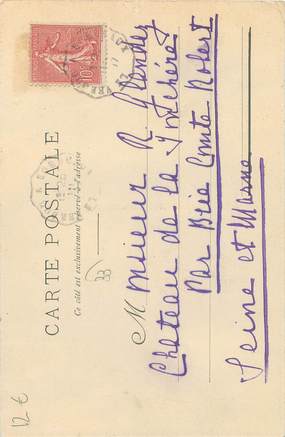 CARTE POSTALE
Ce côté est exclusivement réservé à l'adresse
M Monsieur R
Chateau de la
Par Brie Comte Robert
Seine et Marne
33
12 €
10